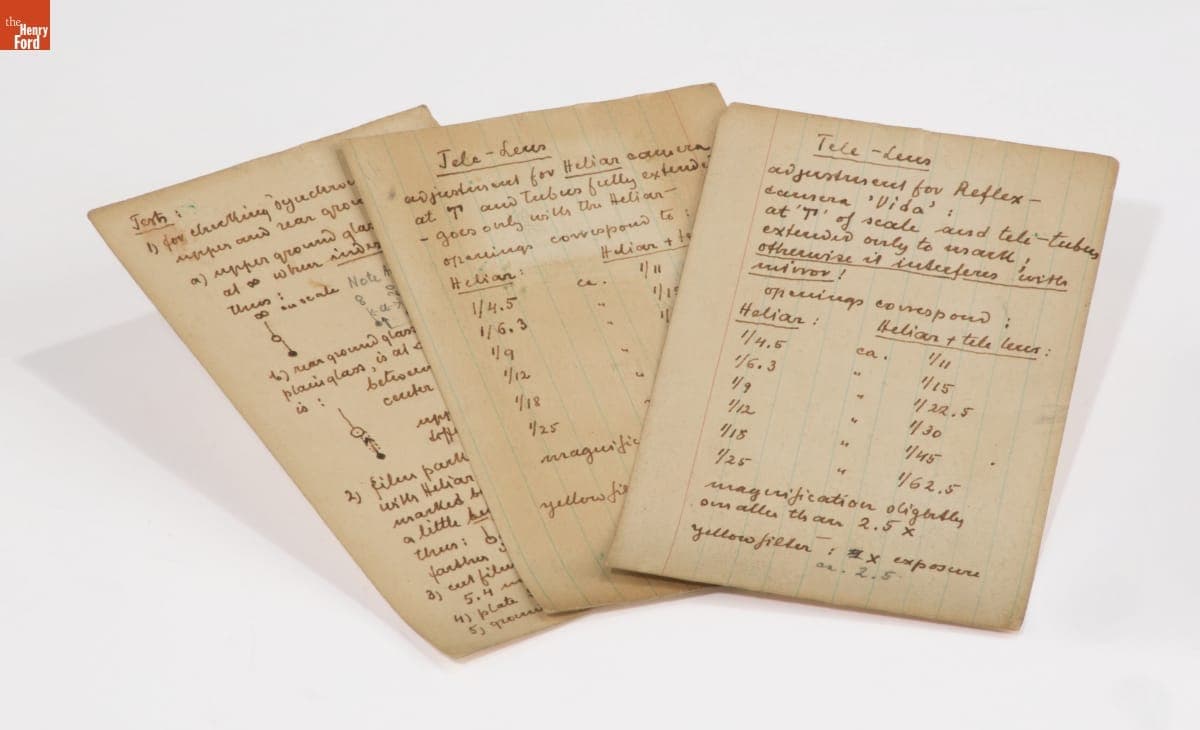 the
Henry
Ford
Tests:
1) for checking synchro
upper and rear groun
a) upper ground glas
at ∞ when index
thus: ∞ on scale Note
8
b) rear ground glass
plain glass, is at
is: betwee
center
upp
2) film pack
with Heliar
marked b
a little
thus:
farther
3) cut film
5.4 m
4) plate
5) groun
Tele-Lens
adjustment for Heliar camera
at "T" and tubus fully extended
- goes only with the Heliar -
openings correspond to:
Heliar: Heliar + te
1/4.5 ca. 1/11
1/6.3 " 1/15
1/9 "
1/12 "
1/18 "
1/25
magnific
yellow fil
Tele-Lens
adjustment for Reflex-
camera 'Vida':
at 'T' of scale and tele-tubus
extended only to mark!
otherwise it interferes with
mirror!
openings correspond:
Heliar: Heliar + tele lens:
1/4.5 ca. 1/11
1/6.3 " 1/15
1/9 " 1/22.5
1/12 " 1/30
1/18 " 1/45
1/25 " 1/62.5
magnification slightly
smaller than 2.5 x
yellow filter: x exposure
ca. 2.5